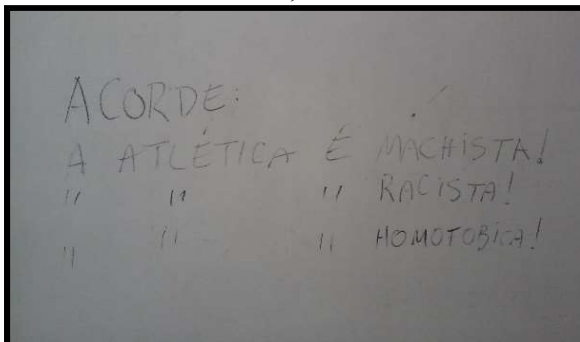 ACORDE:
A ATLÉTICA É MACHISTA!
" " " RACISTA!
" " " HOMOTOBICA!